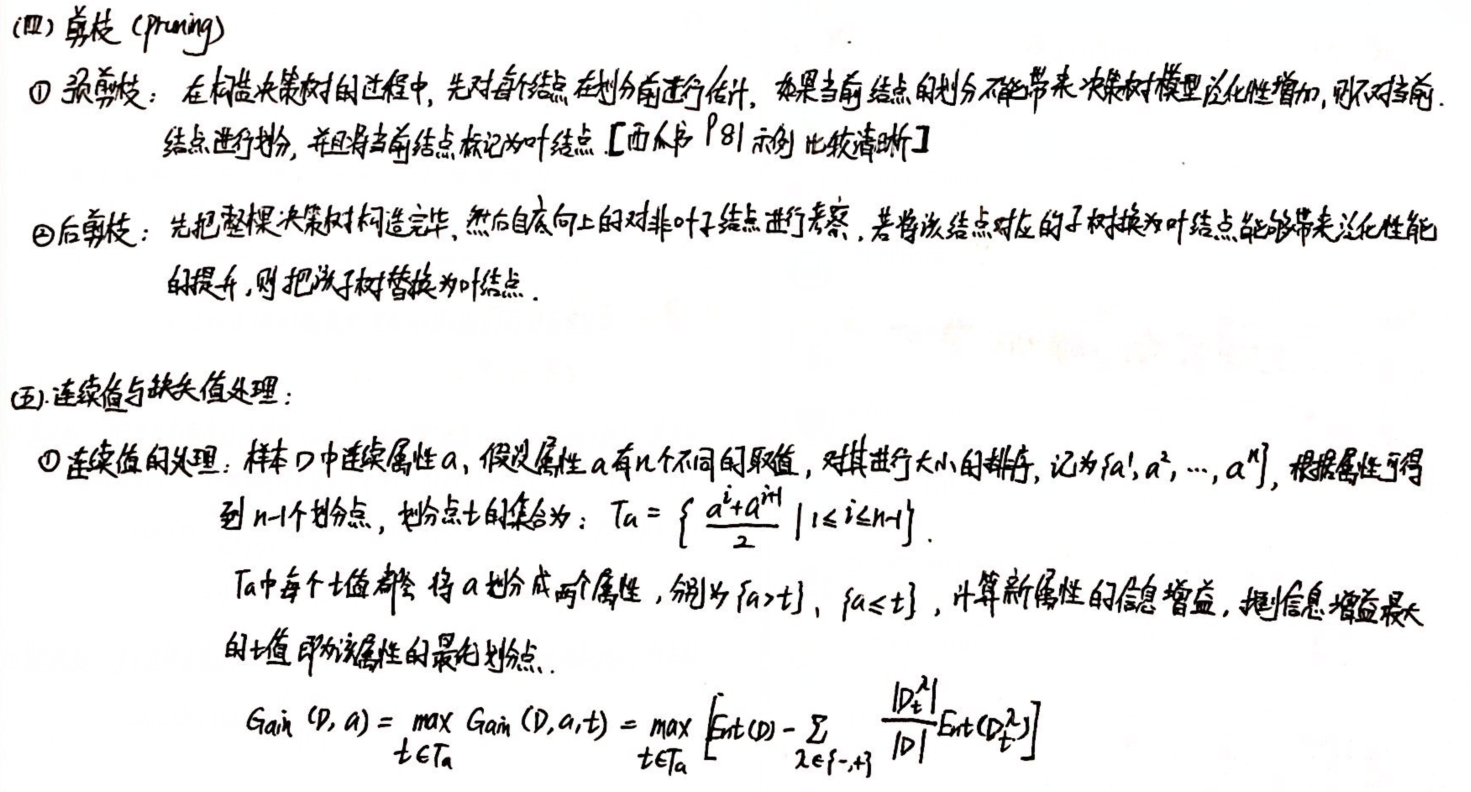 (四) 剪枝 (pruning)
① 预剪枝： 在构造决策树的过程中, 先对每个结点在划分前进行估计, 如果当前结点的划分不能带来决策树模型泛化性增加, 则不对当前.
结点进行划分, 并且将当前结点标记为叶结点.[西瓜书 P81 示例 比较清晰]
②后剪枝： 先把整棵决策树构造完毕, 然后自底向上的对非叶子结点进行考察, 若将该结点对应的子树换为叶结点能够带来泛化性能
的提升, 则把该子树替换为叶结点.
(五).连续值与缺失值处理：
①连续值的处理：样本D中连续属性a, 假设属性a有n个不同的取值, 对其进行大小的排序, 记为{a¹, a², ..., aⁿ}, 根据属性可得
到 n-1个划分点, 划分点t的集合为： Ta = { (aⁱ+aⁱ⁺¹)/2 | 1≤i≤n-1}.
Ta中每个t值都会将a划分成两个属性, 分别为{a>t}、{a≤t}, 计算新属性的信息增益, 找到信息增益最大
的t值即为该属性的最优划分点.
Gain (D, a) = max_{t∈Ta} Gain (D,a,t) = max_{t∈Ta} [Ent(D) - Σ_{λ∈{-,+}} |D_t^λ|/|D| Ent(D_t^λ)]